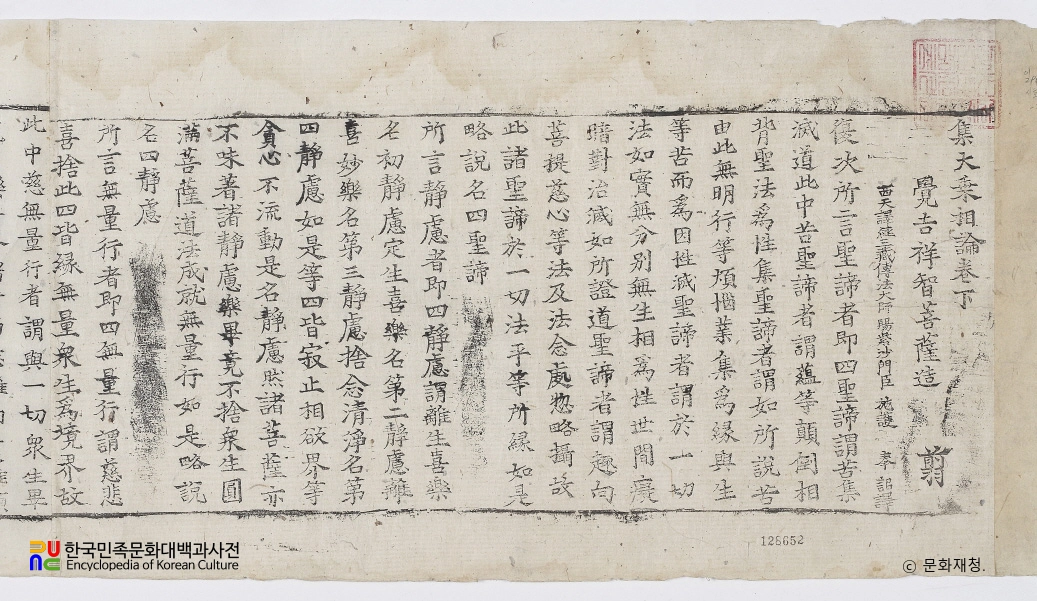 集大乘相論卷下
覺吉祥智菩薩造 剪
西天譯經三藏傳法大師賜紫沙門臣 施護 奉 詔譯
復次所言聖諦者即四聖諦謂苦集
滅道此中苦聖諦者謂蘊等顛倒相
背聖法爲性集聖諦者謂如所說苦
由此無明行等煩惱業集爲緣與生
等苦而爲因性滅聖諦者謂於一切
法如實無分別無生相爲性世間癡
暗對治滅如所證道聖諦者謂趣向
菩提慈心等法及法念處惣略攝故
此諸聖諦於一切法平等所緣如是
略說名四聖諦
所言靜慮者即四靜慮謂離生喜樂
名初靜慮定生喜樂名第二靜慮離
喜妙樂名第三靜慮捨念清淨名第
四靜慮如是等四皆寂止相欲界等
貪心不流動是名靜慮然諸菩薩亦
不味著諸靜慮樂畢竟不捨衆生圓
滿菩薩道法成就無量行如是略說
名四靜慮
所言無量行者即四無量行謂慈悲
喜捨此四皆緣無量衆生爲境界故
此中慈無量行者謂與一切衆生畢
128652
한국민족문화대백과사전
Encyclopedia of Korean Culture
ⓒ 문화재청.